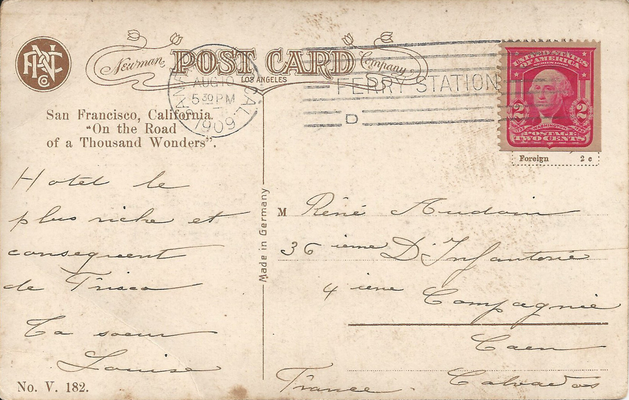 Newman POST CARD Company
LOS ANGELES
AUG 10
5 30 PM
CAL.
1909
FERRY STATION
D
UNITED STATES
OF AMERICA
2 2
POSTAGE
TWO CENTS
Foreign 2 c
San Francisco, California
"On the Road
of a Thousand Wonders".
Hotel le
plus riche et
consequent
de Frisco
Ta soeur
Louise
Made in Germany
M René Audoin
36 ieme D'Infanterie
4 ieme Compagnie
Caen
France. Calvados
No. V. 182.